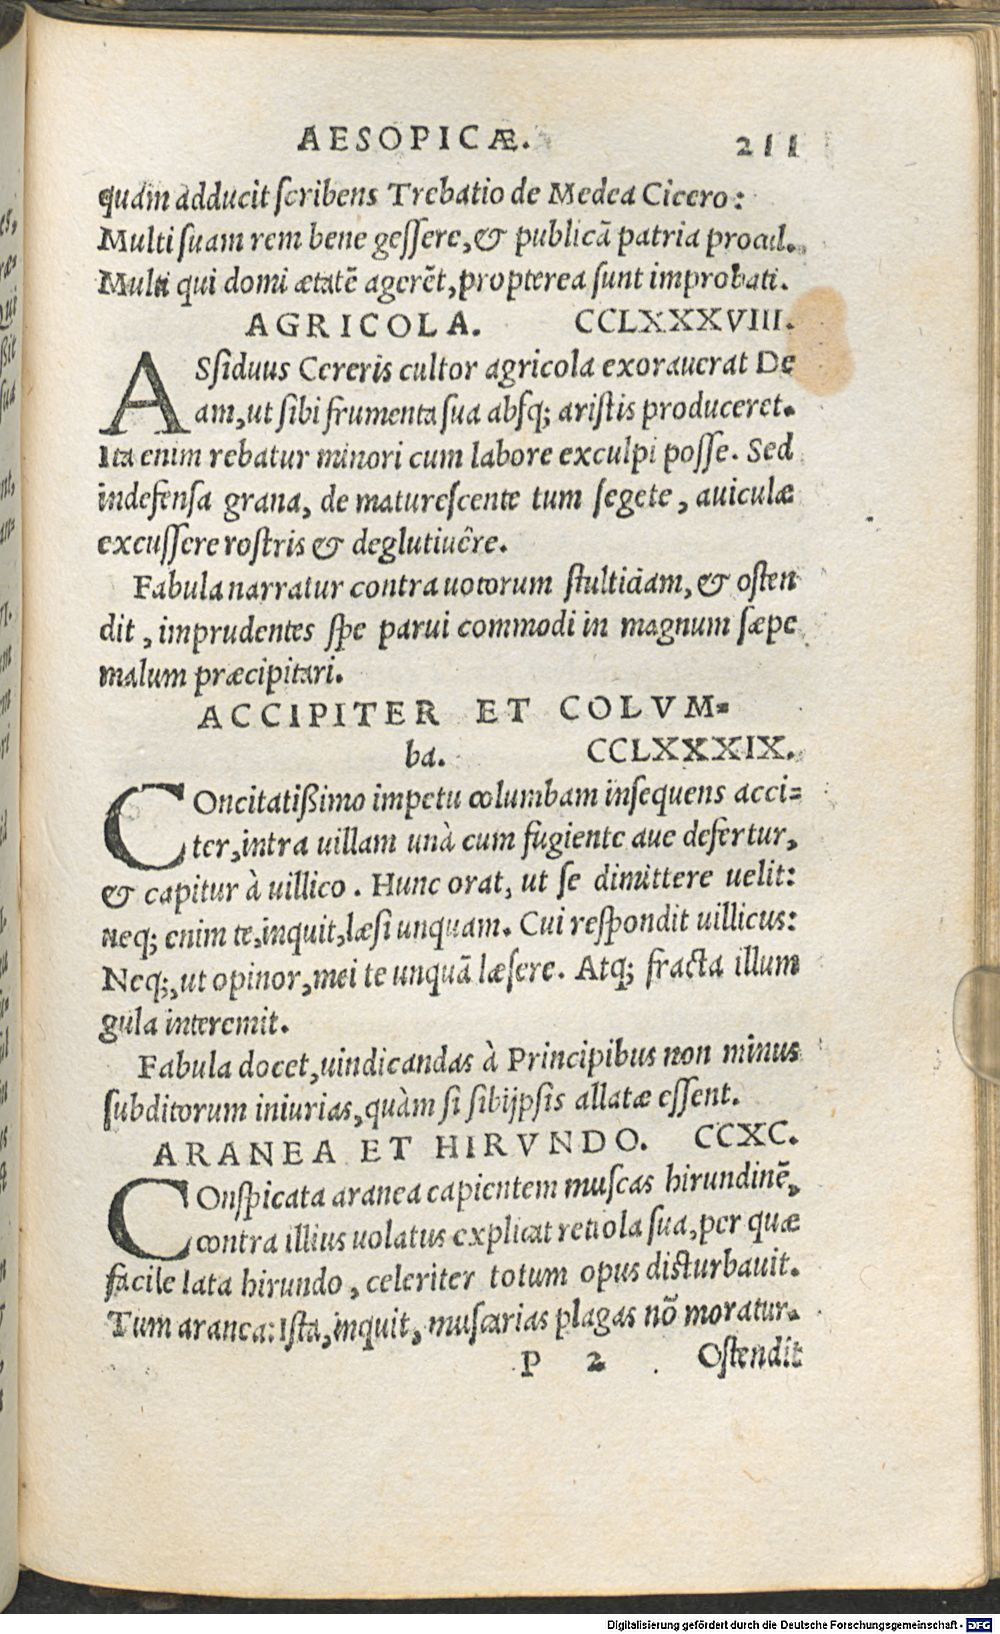 AESOPICÆ. 211
quàm adducit ſcribens Trebatio de Medea Cicero:
Multi ſuam rem bene geſſere, & publicā patria procul.
Multi qui domi ætatē agerēt, propterea ſunt improbati.
AGRICOLA. CCLXXXVIII.
ASſiduus Cereris cultor agricola exorauerat De
am, ut ſibi frumenta ſua abſq; ariſtis produceret.
Ita enim rebatur minori cum labore exculpi poſſe. Sed
indefenſa grana, de matureſcente tum ſegete, auiculæ
excuſſere roſtris & deglutiuêre.
Fabula narratur contra uotorum ſtultitiam, & oſten
dit, imprudentes ſpe parui commodi in magnum ſæpe
malum præcipitari.
ACCIPITER ET COLVM=
ba. CCLXXXIX.
COncitatißimo impetu columbam inſequens acci=
ter, intra uillam unà cum fugiente aue defertur,
& capitur à uillico. Hunc orat, ut ſe dimittere uelit:
neq; enim te, inquit, læſi unquam. Cui reſpondit uillicus:
Neq;, ut opinor, mei te unquā læſere. Atq; fracta illum
gula interemit.
Fabula docet, uindicandas à Principibus non minus
ſubditorum iniurias, quàm ſi ſibijpſis allatæ eſſent.
ARANEA ET HIRVNDO. CCXC.
COnſpicata aranea capientem muſcas hirundinē,
contra illius uolatus explicat retiola ſua, per quæ
facile lata hirundo, celeriter totum opus diſturbauit.
Tum aranea: Iſta, inquit, muſcarias plagas nō moratur.
P 2 Oſtendit
Digitalisierung gefördert durch die Deutsche Forschungsgemeinschaft - DFG